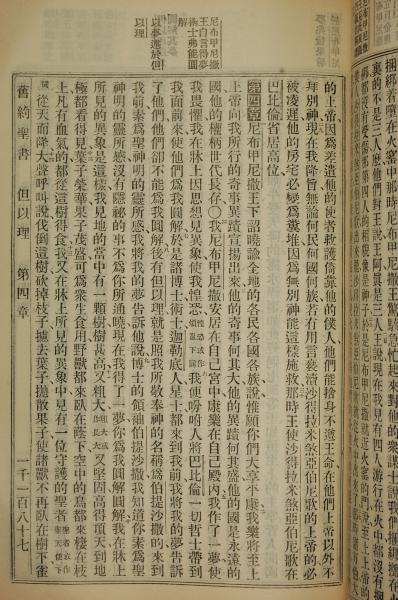 捆綁着墮在火窰中那時尼布甲尼撒王驚駭急忙起來對他的衆謀士說我們捆綁
裏的不是三人麽他們對王說王阿眞是三人王說現在我見有四人游行在火中都沒有捆
的上帝因爲差遣他的使者救護倚靠他的僕人他們能捨身不遵王命在他們上帝以外不
拜別神現在我降旨無論何民何國何族若有用言褻瀆沙得拉米煞亞伯尼歌的上帝的必
被凌遲他的房宅必變爲糞堆因爲無別神能這樣施救那時王使沙得拉米煞亞伯尼歌在
巴比倫省居高位
第四章尼布甲尼撒王下詔曉諭全地的各民各國各族說惟願你們大享平康我樂將至上
上帝向我所行的奇事異蹟宣揚出來他的奇事何其大他的異蹟何其盛他的國是永遠的
國他的權柄世代長存〇我尼布甲尼撒安居在自己宮中康樂在自己殿內我作了一夢使
我畏懼我在牀上因思想見異象使我惶恐惶恐或作煩亂下同我便吩咐人將巴比倫一切哲士帶到
我面前來使他們爲我圓解於是諸博士術士迦勒底人星士都來到我前我將我的夢告訴
了他們他們卻不能爲我圓解後有但以理就是照我所敬奉神的名稱爲伯提沙撒的來到
我前素爲聖神明的靈所感我將我的夢告訴他說博士的領袖伯提沙撒我知道你素爲聖
神明的靈所感沒有隱秘的事不爲你所通曉現在我得了一夢你爲我圓解圓解我在牀上
所見的異象是這樣我見地的當中有一顆樹樹甚高又粗大粗大或作長大又堅固高得頂天到地
極都看得見葉子榮華果子茂盛可爲衆生食用野獸都來臥在陰下空中的鳥都來棲在枝
上凡有血氣的都從這樹得食我又在牀上所見的異象中見有一位守護的聖者
從天而降大聲呼叫說伐倒這樹砍掉枝子擄去葉子抛散果子使諸獸不再臥在樹下雀
舊約聖書 但以理 第四章 一千二百八十七
尼布甲尼撒
王自言得夢
術士弗能圓
解
以夢述於但
以理